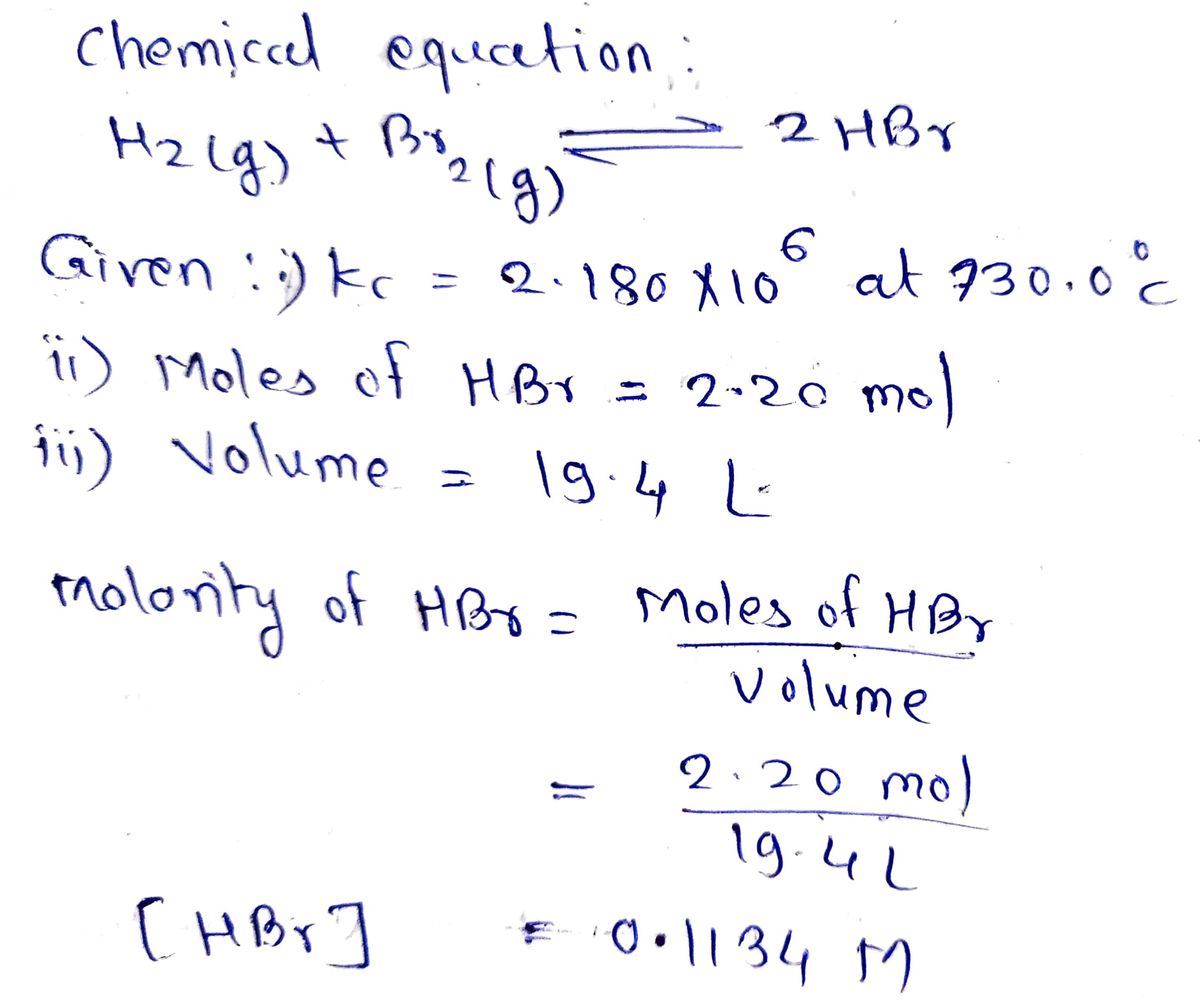 Chemical equation :
H2(g) + Br2(g) ⇌ 2 HBr
Given : i) kc = 2.180 X10^6 at 730.0°C
ii) Moles of HBr = 2.20 mol
iii) Volume = 19.4 L
Molority of HBr = Moles of HBr
Volume
= 2.20 mol
19.4 L
[HBr] = 0.1134 M